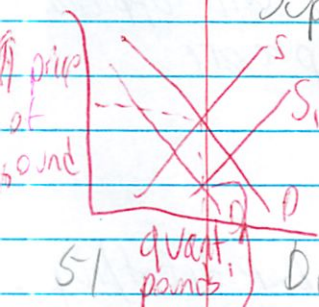 price
of
pound
S
S1
D
D1
quant.
pounds
51
D1